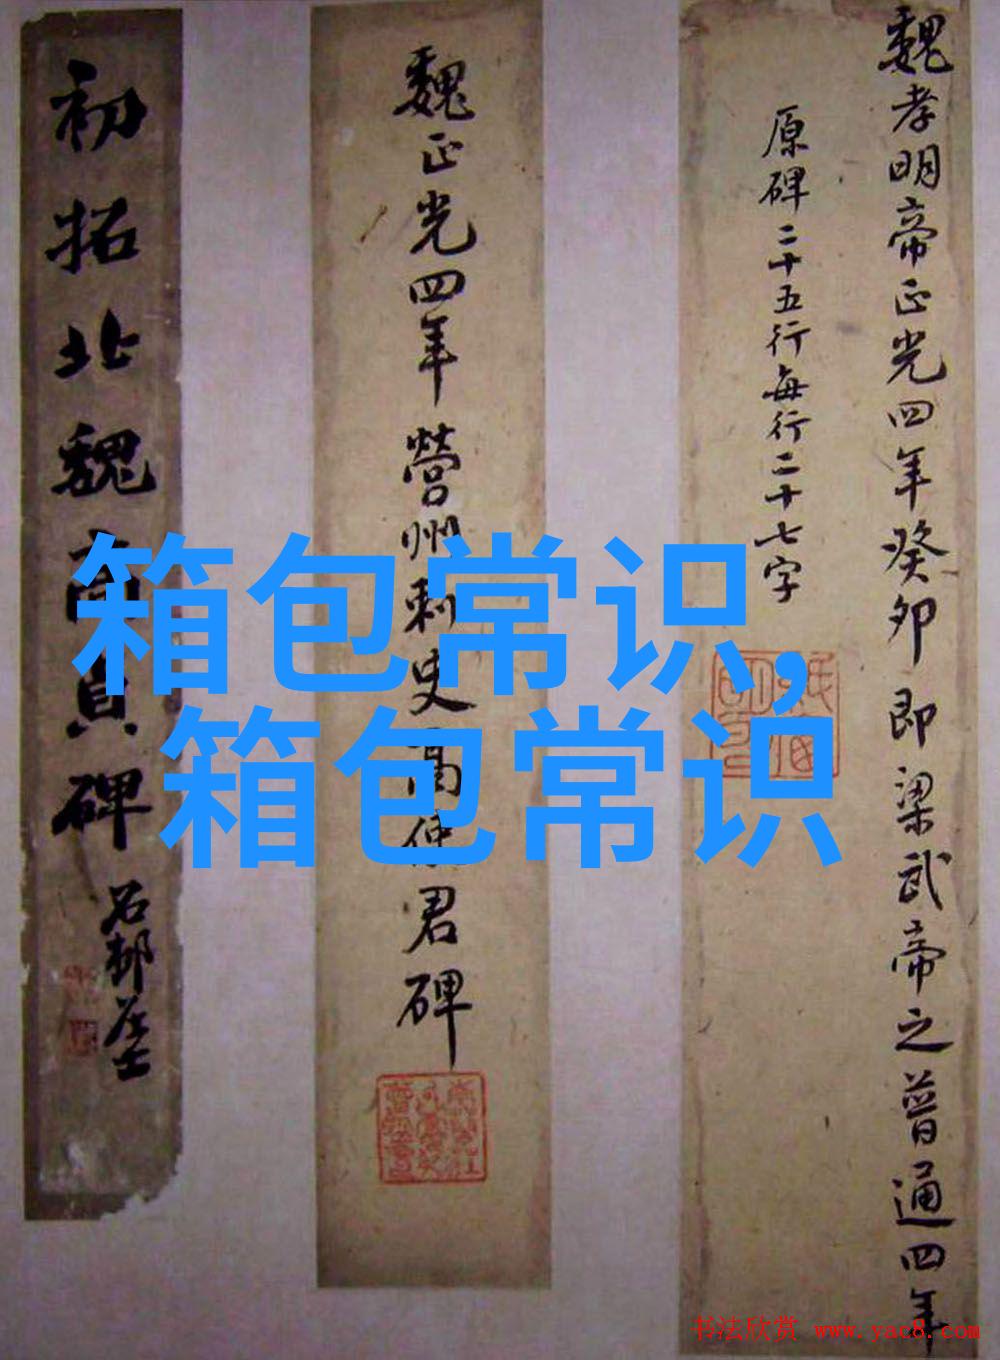 魏孝明帝正光四年癸卯即梁武帝之普通四年
原碑二十五行每行二十七字
魏正光四年營州刺史高使君碑
初拓北魏高貞碑
石邨居士
箱包常识,
箱包常识
书法欣赏 www.yac8.com